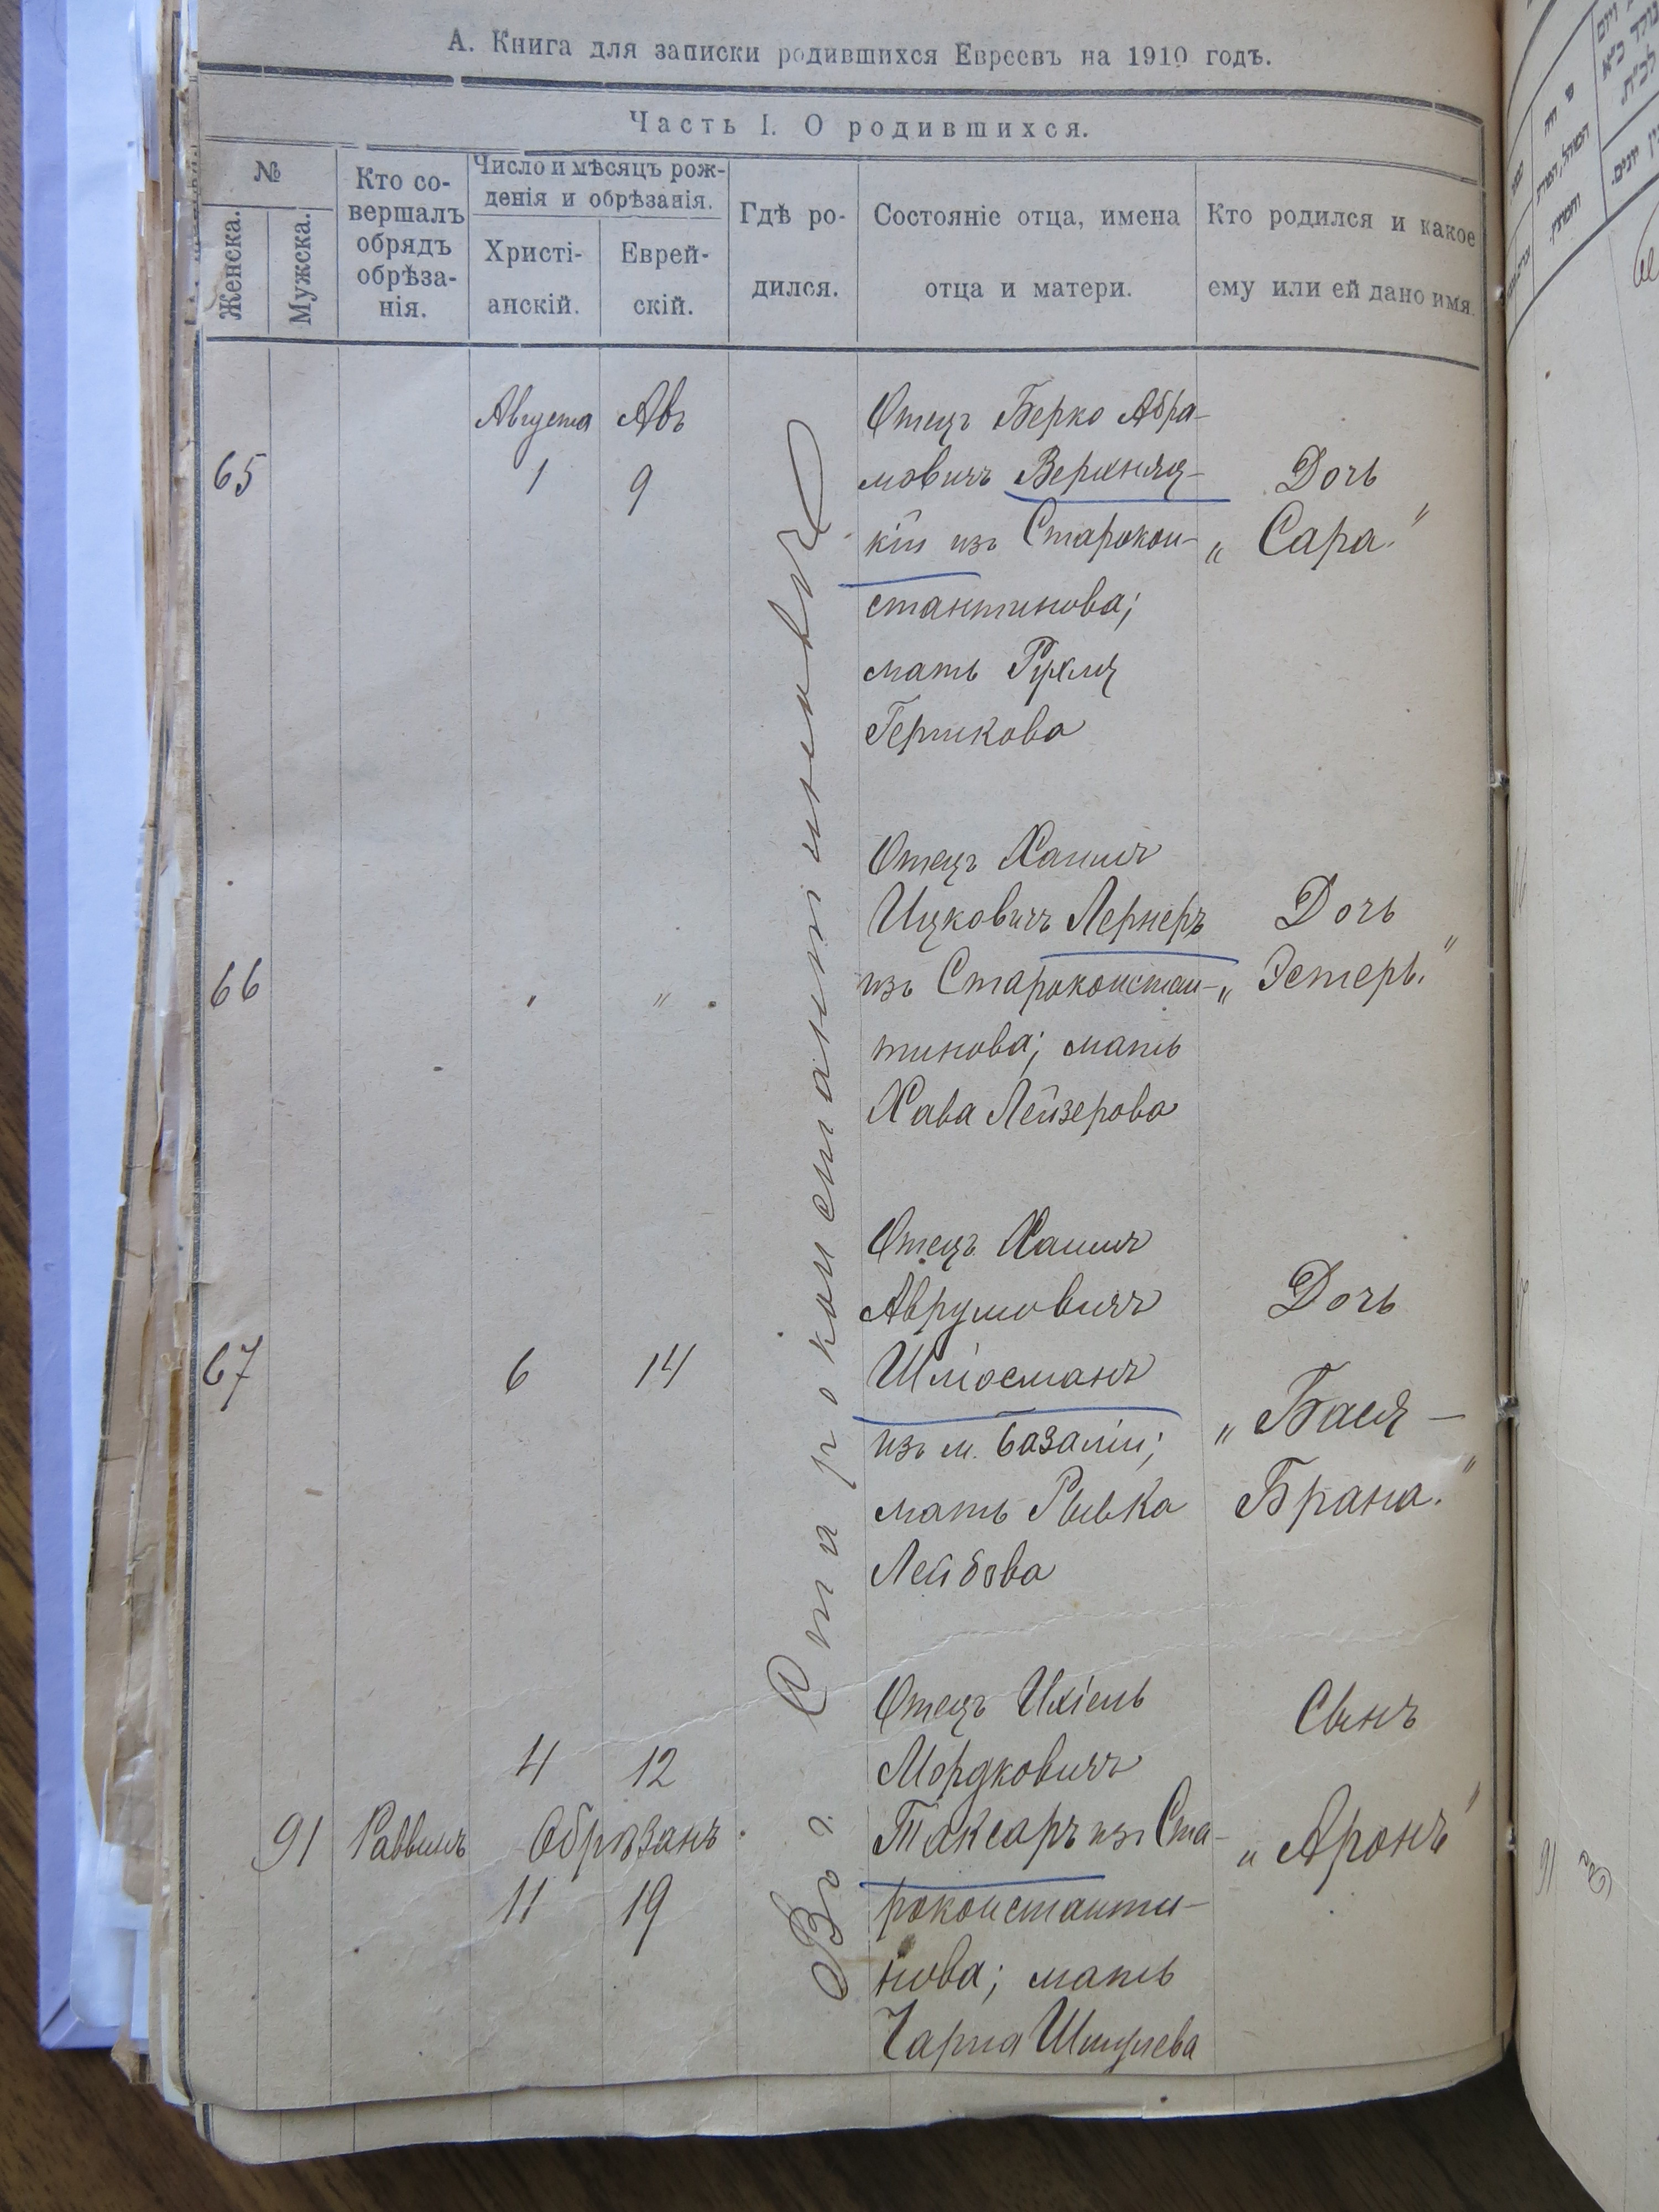 А. Книга для записки родившихся Евреевъ на 1910 годъ.
Часть I. О родившихся.
№
Женска.
Мужска.
Кто со-
вершалъ
обрядъ
обрѣза-
нія.
Число и мѣсяцъ рож-
денія и обрѣзанія.
Христі-
анскій.
Еврей-
скій.
Гдѣ ро-
дился.
Состояніе отца, имена
отца и матери.
Кто родился и какое
ему или ей дано имя.
Августа Авъ
65 1 9
Отецъ Берко Абра-
мовичъ Верхняц-
кій изъ Старокон-
стантинова;
мать Рухля
Гершкова
Дочь
„Сара."
66 " "
Отецъ Хаимъ
Ицковичъ Лернеръ
изъ Староконстан-
тинова; мать
Хава Лейзерова
Дочь
„Эстеръ."
67 6 14
Отецъ Хаимъ
Аврумовичъ
изъ м. Базаліи;
мать Рывка
Лейбова
Дочь
„Бася-
Брана."
91 Раввинъ
4 12
Обрѣзанъ
11 19
Отецъ Ихіель
Мордковичъ
Таксаръ изъ Ста-
роконстанти-
нова; мать
Чарна Шмулева
Сынъ
„Аронъ"
Въ г. Староконстантиновѣ